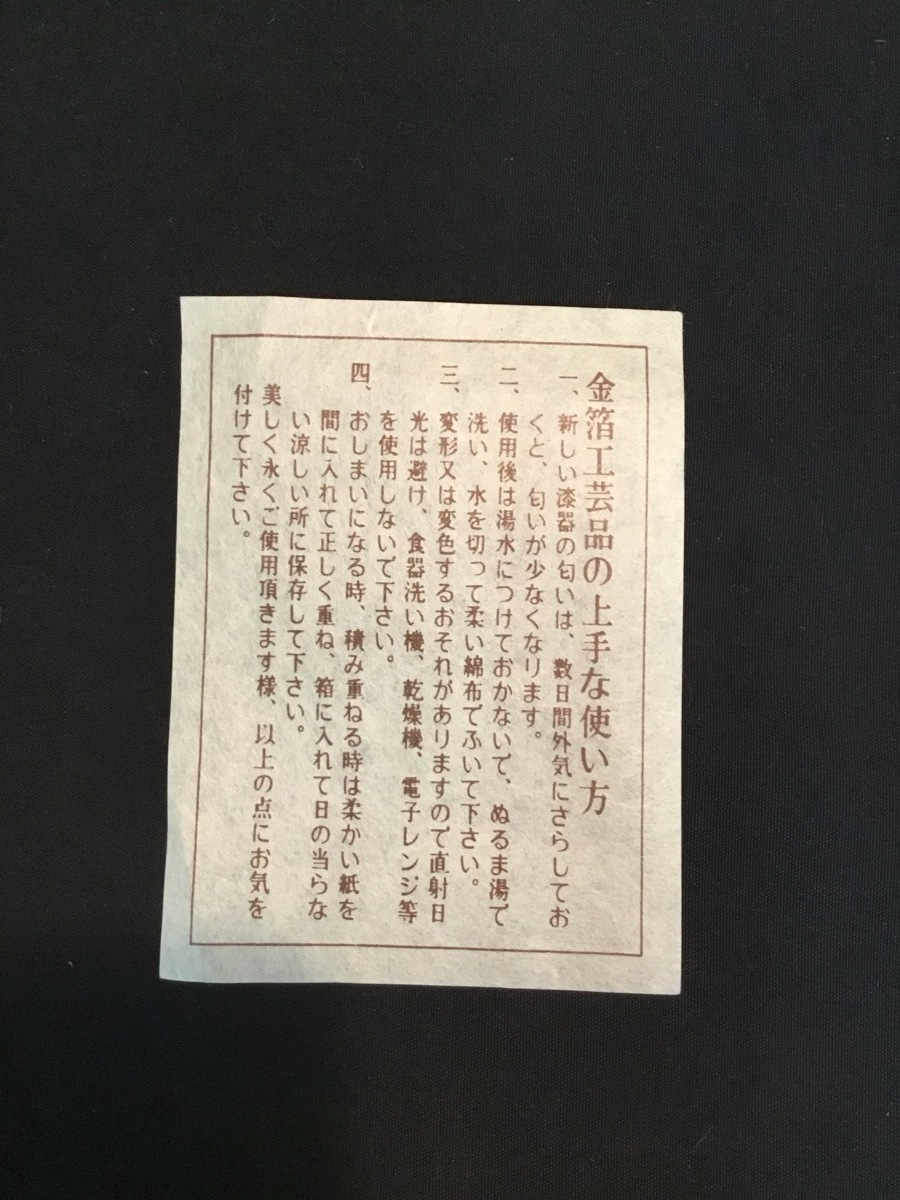 金箔工芸品の上手な使い方
一、新しい漆器の匂いは、数日間外気にさらしてお
くと、匂いが少なくなります。
二、使用後は湯水につけておかないで、ぬるま湯で
洗い、水を切って柔い綿布でふいて下さい。
三、変形又は変色するおそれがありますので直射日
光は避け、食器洗い機、乾燥機、電子レンジ等
を使用しないで下さい。
四、おしまいになる時、積み重ねる時は柔かい紙を
間に入れて正しく重ね、箱に入れて日の当らな
い涼しい所に保存して下さい。
美しく永くご使用頂きます様、以上の点にお気を
付けて下さい。